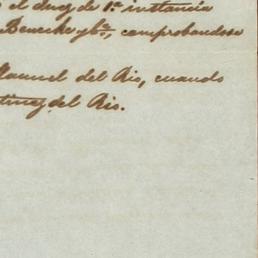 el Juez de 1ª instancia
Benecke y Cª, comprobandose
Manuel del Rio, cuando
tinez del Rio.